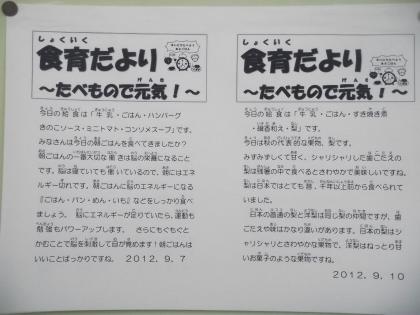 しょくいく
食育だより
～たべもので元気！～
今日の給食は「牛乳・ごはん・ハンバーグ
きのこソース・ミニトマト・コンソメスープ」です。
みなさんは今日の朝ごはんを食べてきましたか？
朝ごはんの一番大切な働きは脳の栄養になること
です。脳は寝ていても働いているので、朝にはエネ
ルギー切れです。朝ごはんに脳のエネルギーになる
『ごはん・パン・めん・いも』などをしっかり食べ
ましょう。脳にエネルギーが足りていたら、運動も
勉強もパワーアップします。さらにもぐもぐと
かむことで脳を刺激して目が覚めます！朝ごはんは
いいことばっかりですね。 2012.9.7
しょくいく
食育だより
～たべもので元気！～
今日の給食は「牛乳・ごはん・すき焼き煮
・磯香和え・梨」です。
今日は秋の代表的な果物、梨です。
みずみずしくて甘く、シャリシャリした歯ごたえの
梨は残暑の中で食べるとさわやかで美味しいですね。
梨は日本ではとても昔、千年以上前から食べられて
いました。
日本の普通の梨と洋梨は同じ梨の仲間ですが、歯
ごたえや味はかなり違いがあります。日本の梨はシ
ャリシャリとさわやかな果物で、洋梨はねっとり甘
いお菓子のような果物ですね。
2012.9.10